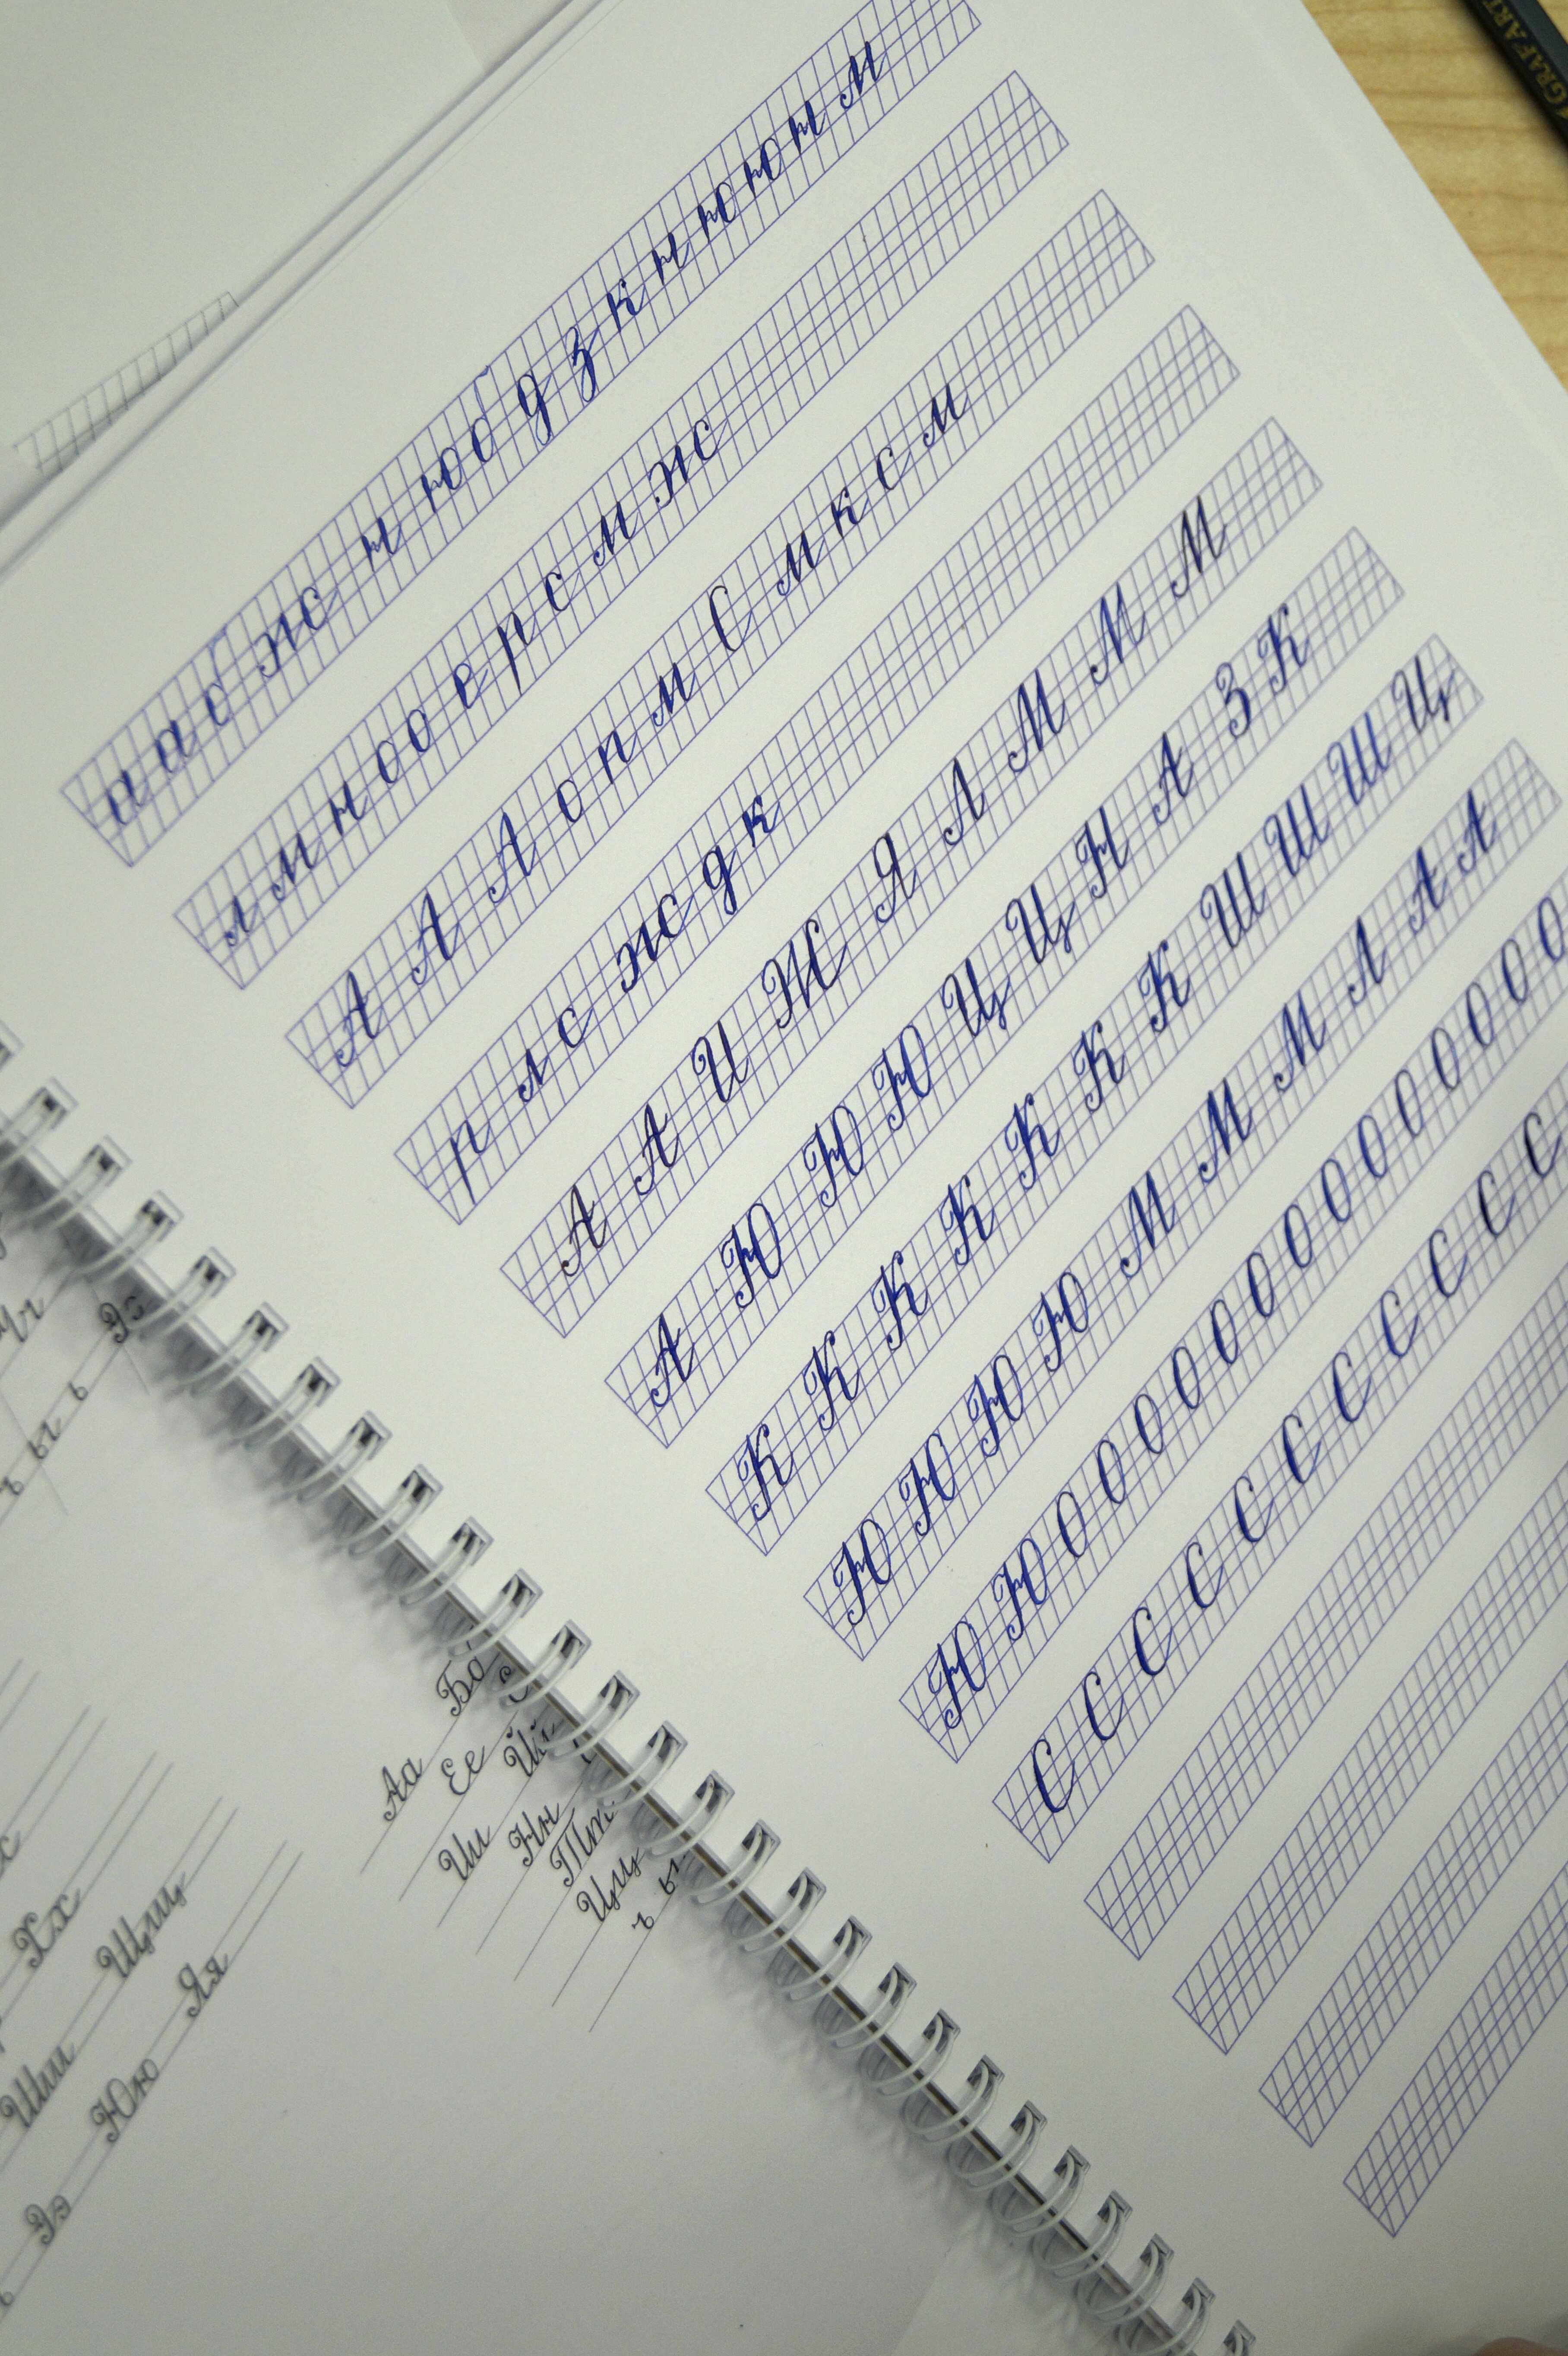 а а б ж н ю б д з к н ю ю н м
л м н о о е р с м ж
А А А о п м С м к с м
р л с ж д к
А А И Ж Я Л М М М
А Ю Ю Ю Ц Ц Н А З К
К К К К К К К Ш Ш Ш Ц
Ю Ю Ю Ю М М М Л А А
Ю Ю О О О О О О О О О О О О О О
С С С С С С С С С С С
Аа Бб
Ее
Ии Йй
Нн
Тт
Цц
ъ ы
Хх
Шш Щщ
Ээ Юю Яя
ъ ы ь Ээ
GRAF ART